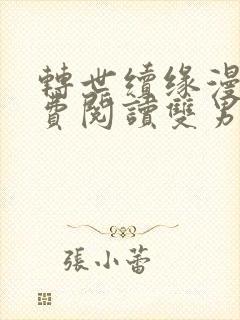 轉世續缘漫
費閱讀雙男
張小蕾